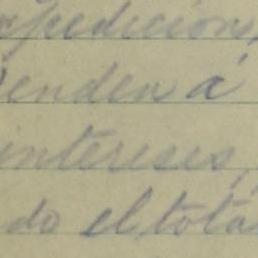 xpedicion,
ienden á
intereses,
do el tota